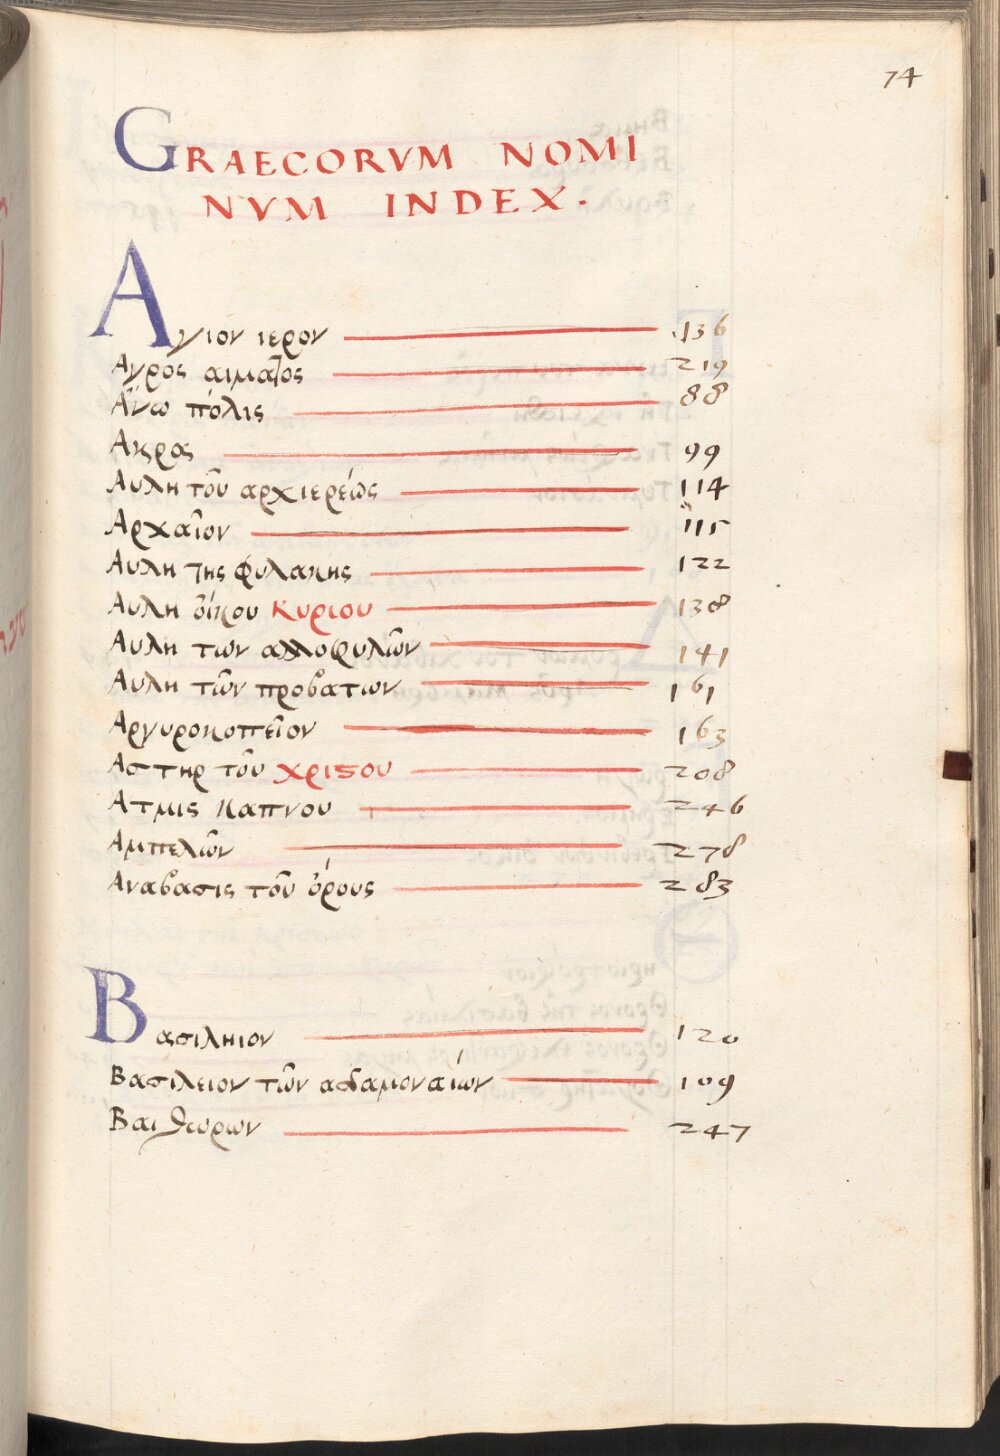 74
GRAECORVM NOMI
NVM INDEX.
Αγιον ιερον 136
Αγρος αιματος 219
Ἄνω πόλις 88
Ακρας 99
Αυλη τοῦ αρχιερέως 114
Αρχαῖον 115
Αυλη της φυλακης 122
Αυλη ὄικου κυριου 138
Αυλη των αλλοφυλῶν 141
Αυλη τῶν προβατων 161
Αργυροκοπεῖον 163
Αστηρ τοῦ χριϛου 208
Ατμις καπνου 246
Αμπελῶν 278
Αναβασις τοῦ ὄρους 283
Βασιληιον 120
Βασιλειον τῶν ασαμοναίων 109
Βαιθωρων 247